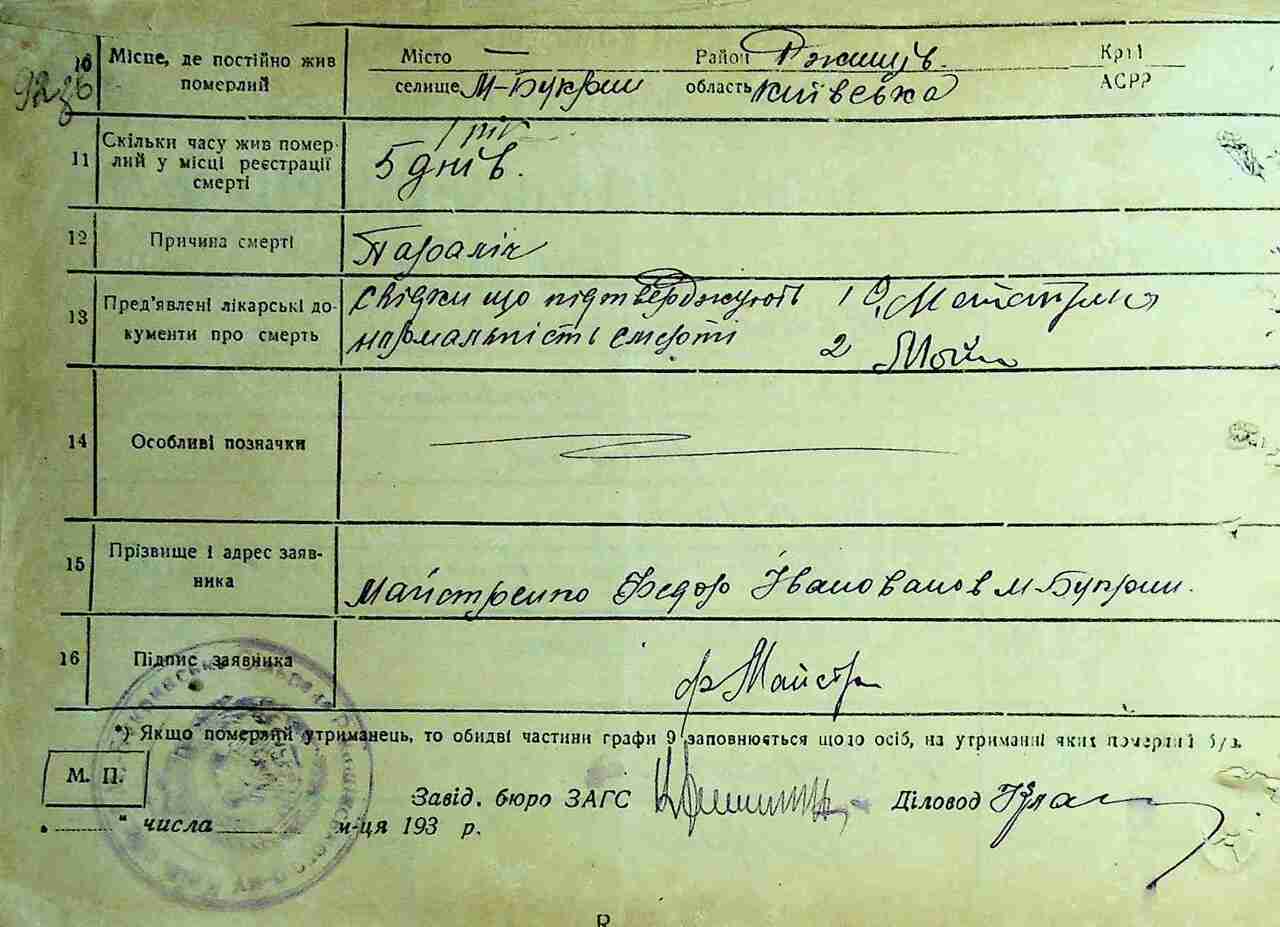 10 Місце, де постійно жив Місто — Район Ржищів Край
померлий селище М-Букрин область Київська АСРР
1 рік
11 Скільки часу жив помер- 5 днів.
лий у місці реєстрації
смерті
12 Причина смерті Параліч
13 Пред'явлені лікарські до- Свідки що підтверджують 1
кументи про смерть нармальність смерті 2
14 Особливі позначки
15 Прізвище і адрес заяв-
ника Майстренко Федор М-Букрин.
16 Підпис заявника Ф Майстр
*) Якщо померлий утриманець, то обидві частини графи 9 заповнюється щодо осіб, на утриманні яких померлий був.
М. П.
Завід. бюро ЗАГС Діловод
„ “ числа м-ця 193 р.